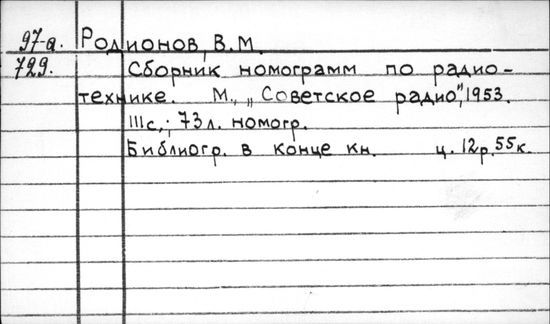 97-а. Родионов, В.М.
729. Сборник номограмм по радио-
технике. М., „Советское радио", 1953.
IIIс.; 73л. номогр.
Библиогр. в конце кн. ц. 12р.55к.